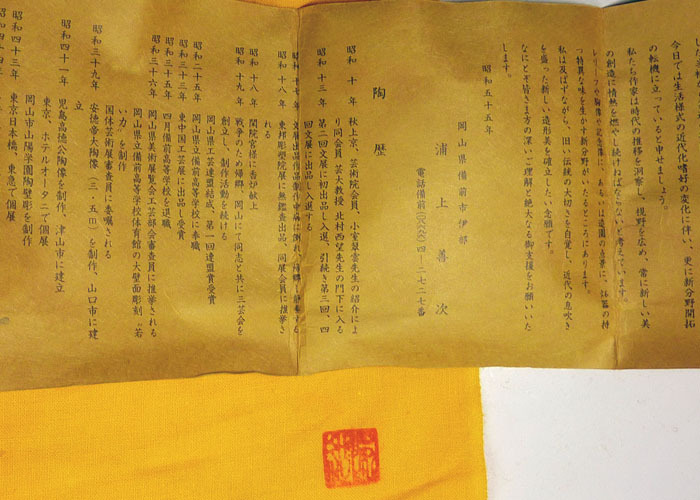 今日では生活様式の近代化嗜好の変化に伴い、更に新分野開拓
の転機に立っていると申せましょう。
私たち作家は時代の推移を洞察し、視野を広め、常に新しい美
の創造に情熱を燃やし続けねばならないと考えています。
つ特異な味を生かす新分野がいたるところにあります。
私は及ばずながら、旧い伝統の大切さを自覚し、近代の息吹き
を盛った新しい造形美を確立したい念願です。
なにとぞ皆さま方の深いご理解と絶大なる御支援をお願いいた
します。
昭和五十五年
岡山県備前市伊部
浦上善次
電話備前(〇八六九)四ー二七二七番
陶歴
昭和十年 秋上京、芸術院会員、小室翠雲先生の紹介によ
り同会員芸大教授北村西望先生の門下に入る
昭和十三年 第二回文展に初出品し入選、引続き第三回、四
回文展に出品し入選する
昭和十八年 東邦彫塑院展に無鑑査出品、同展会員に推挙さ
れる
昭和十八年 閑院宮様に香炉献上
昭和十九年 戦争のため帰郷、岡山にて同志と共に三芸会を
創立し、制作活動を続ける
岡山県工芸連盟結成、第一回連盟賞受賞
昭和二十五年 岡山県立備前高等学校に奉職
昭和三十三年 東中国工芸展に出品し受賞
昭和三十五年 四月備前高等学校を退職
昭和三十六年 岡山県美術展覧会工芸部会審査員に推挙される
岡山県立備前高等学校体育館の大壁面彫刻"若
い力"を制作
昭和三十九年 国体芸術展審査員に委嘱される
安徳帝大陶像(三・五m)を制作、山口市に建
立
昭和四十一年 児島高徳公陶像を制作、津山市に建立
東京、ホテルオータニで個展
昭和四十三年 岡山市山陽学園陶壁彫を制作
東京日本橋、東急で個展